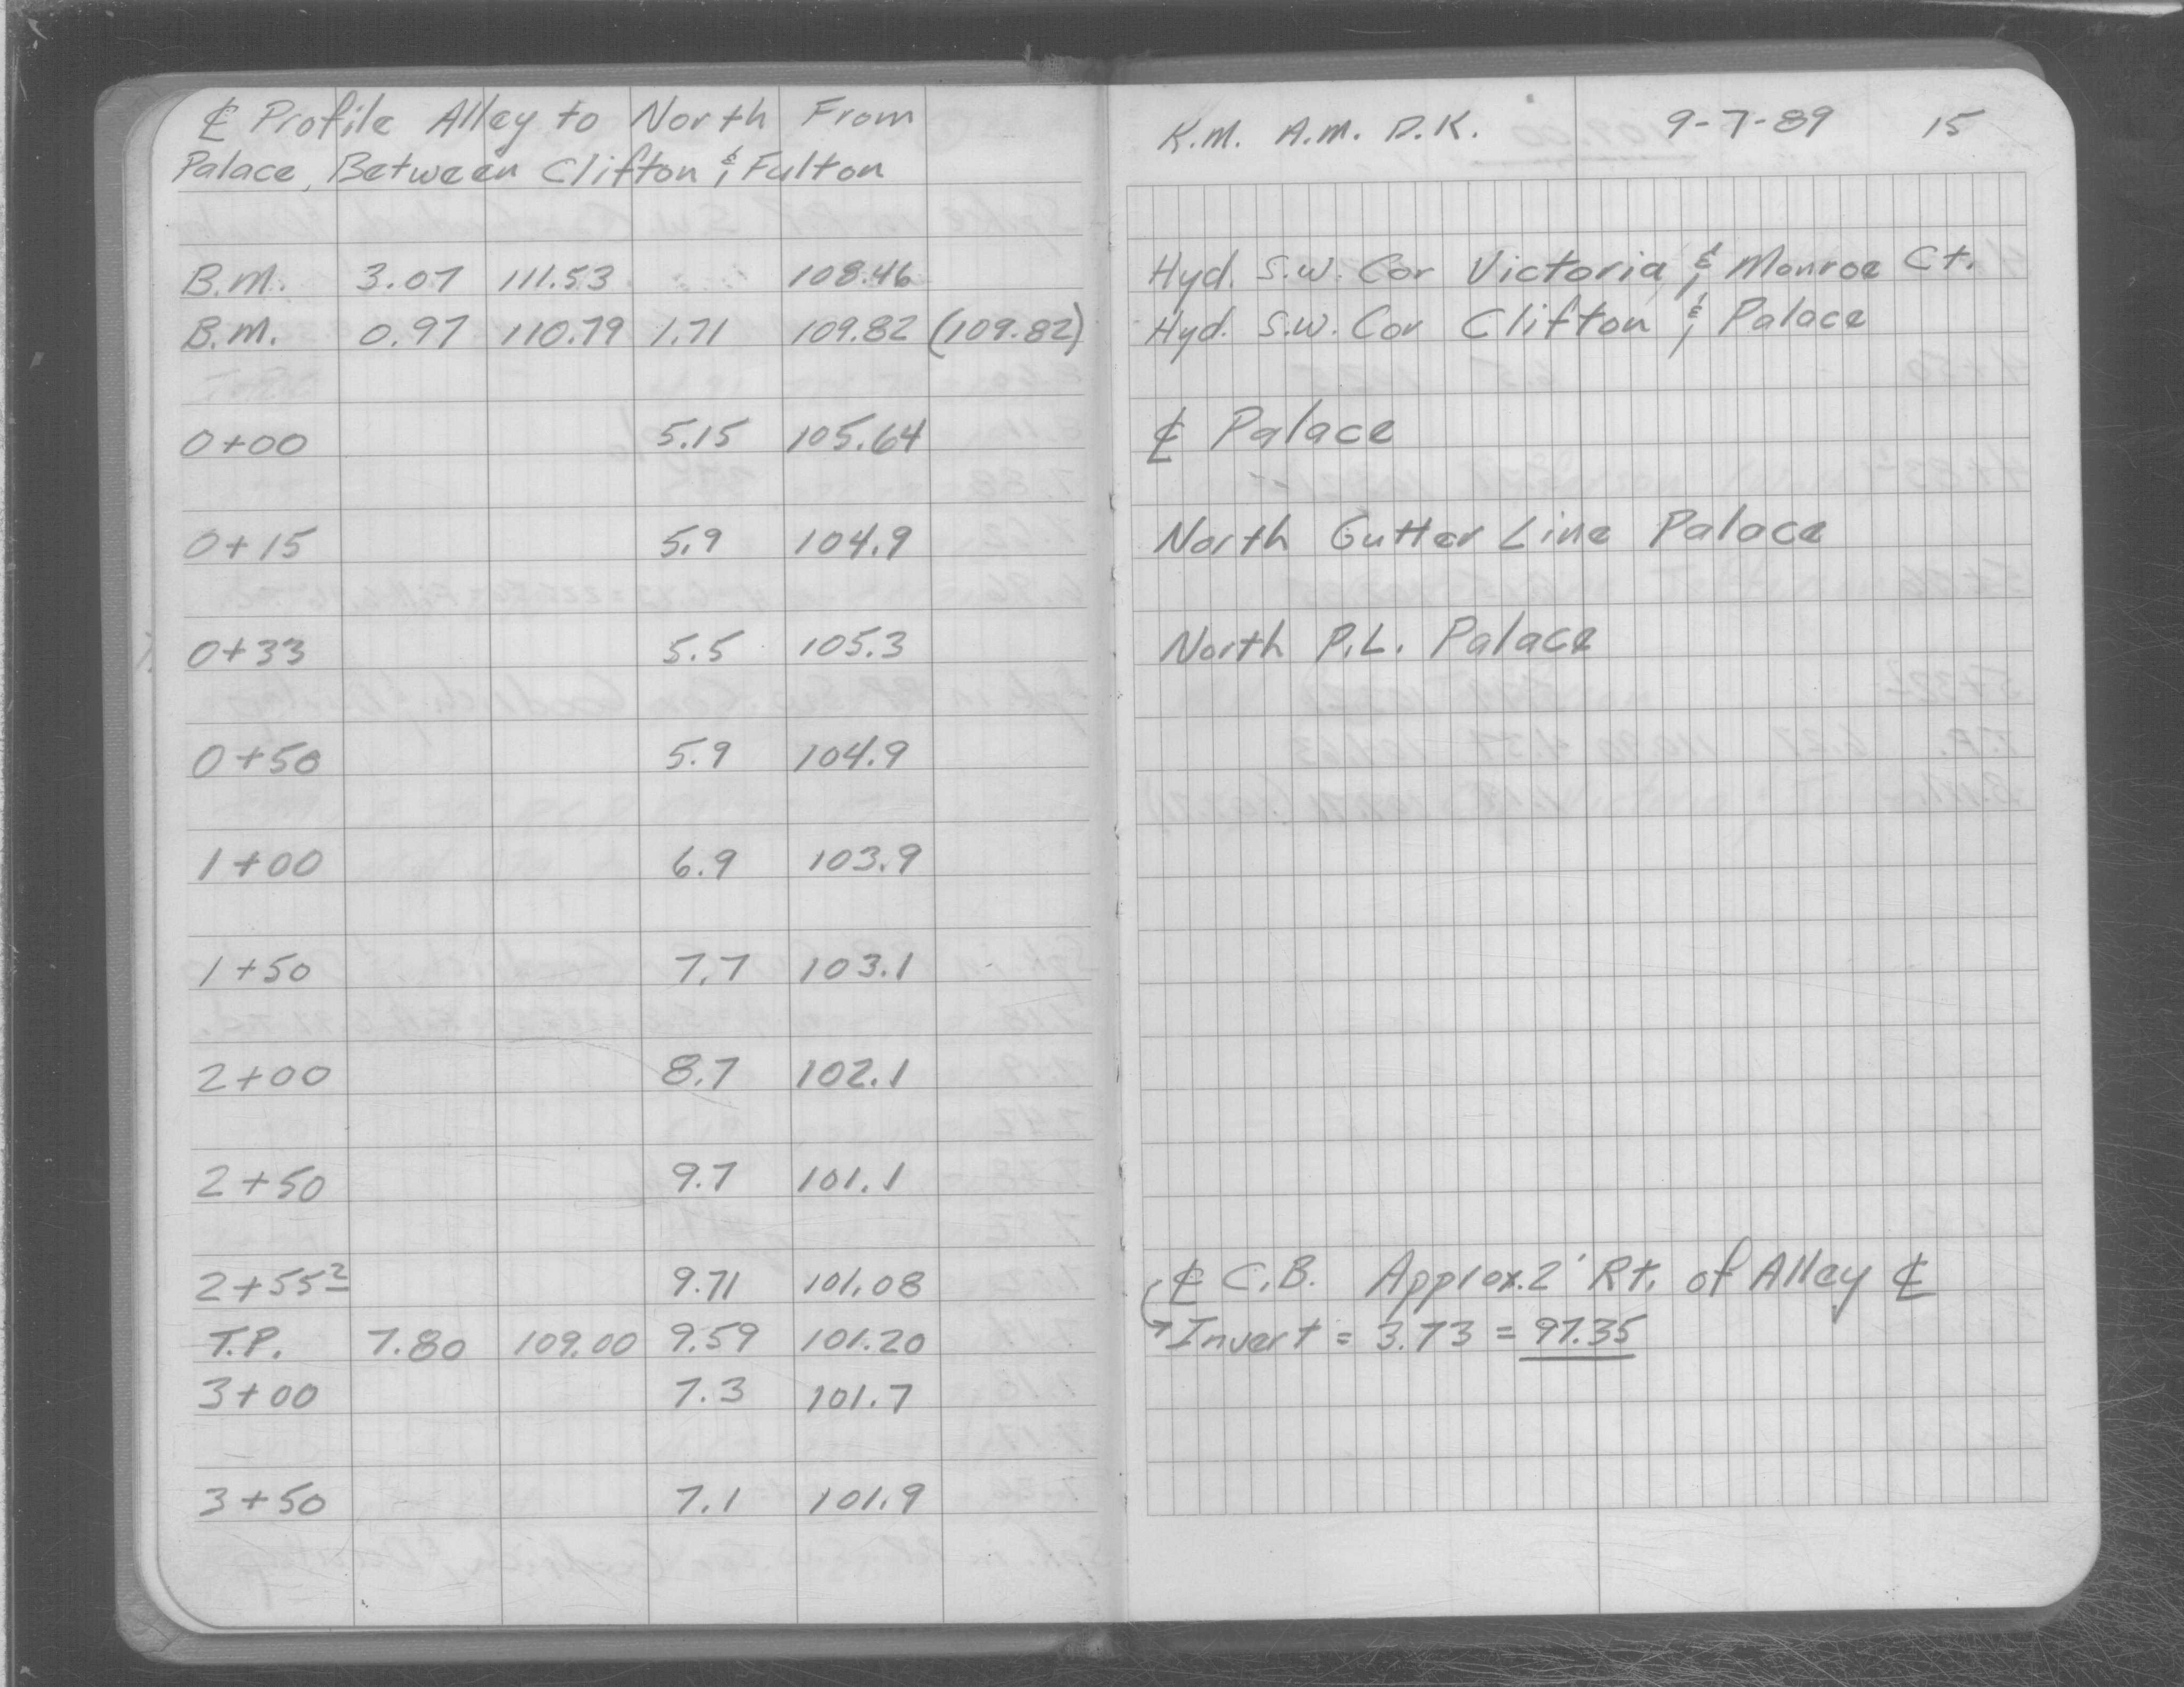 ℄ Profile Alley to North From
Palace, Between Clifton & Fulton
B.M. 3.07 111.53 108.46
B.M. 0.97 110.79 1.71 109.82 (109.82)
0+00 5.15 105.64
0+15 5.9 104.9
0+33 5.5 105.3
0+50 5.9 104.9
1+00 6.9 103.9
1+50 7.7 103.1
2+00 8.7 102.1
2+50 9.7 101.1
2+55² 9.71 101.08
T.P. 7.80 109.00 9.59 101.20
3+00 7.3 101.7
3+50 7.1 101.9
K.M. A.M. D.K. 9-7-89 15
Hyd. S.W. Cor Victoria & Monroe Ct.
Hyd. S.W. Cor Clifton & Palace
℄ Palace
North Gutter Line Palace
North P.L. Palace
℄ C.B. Approx. 2' Rt. of Alley ℄
→Invert = 3.73 = 97.35